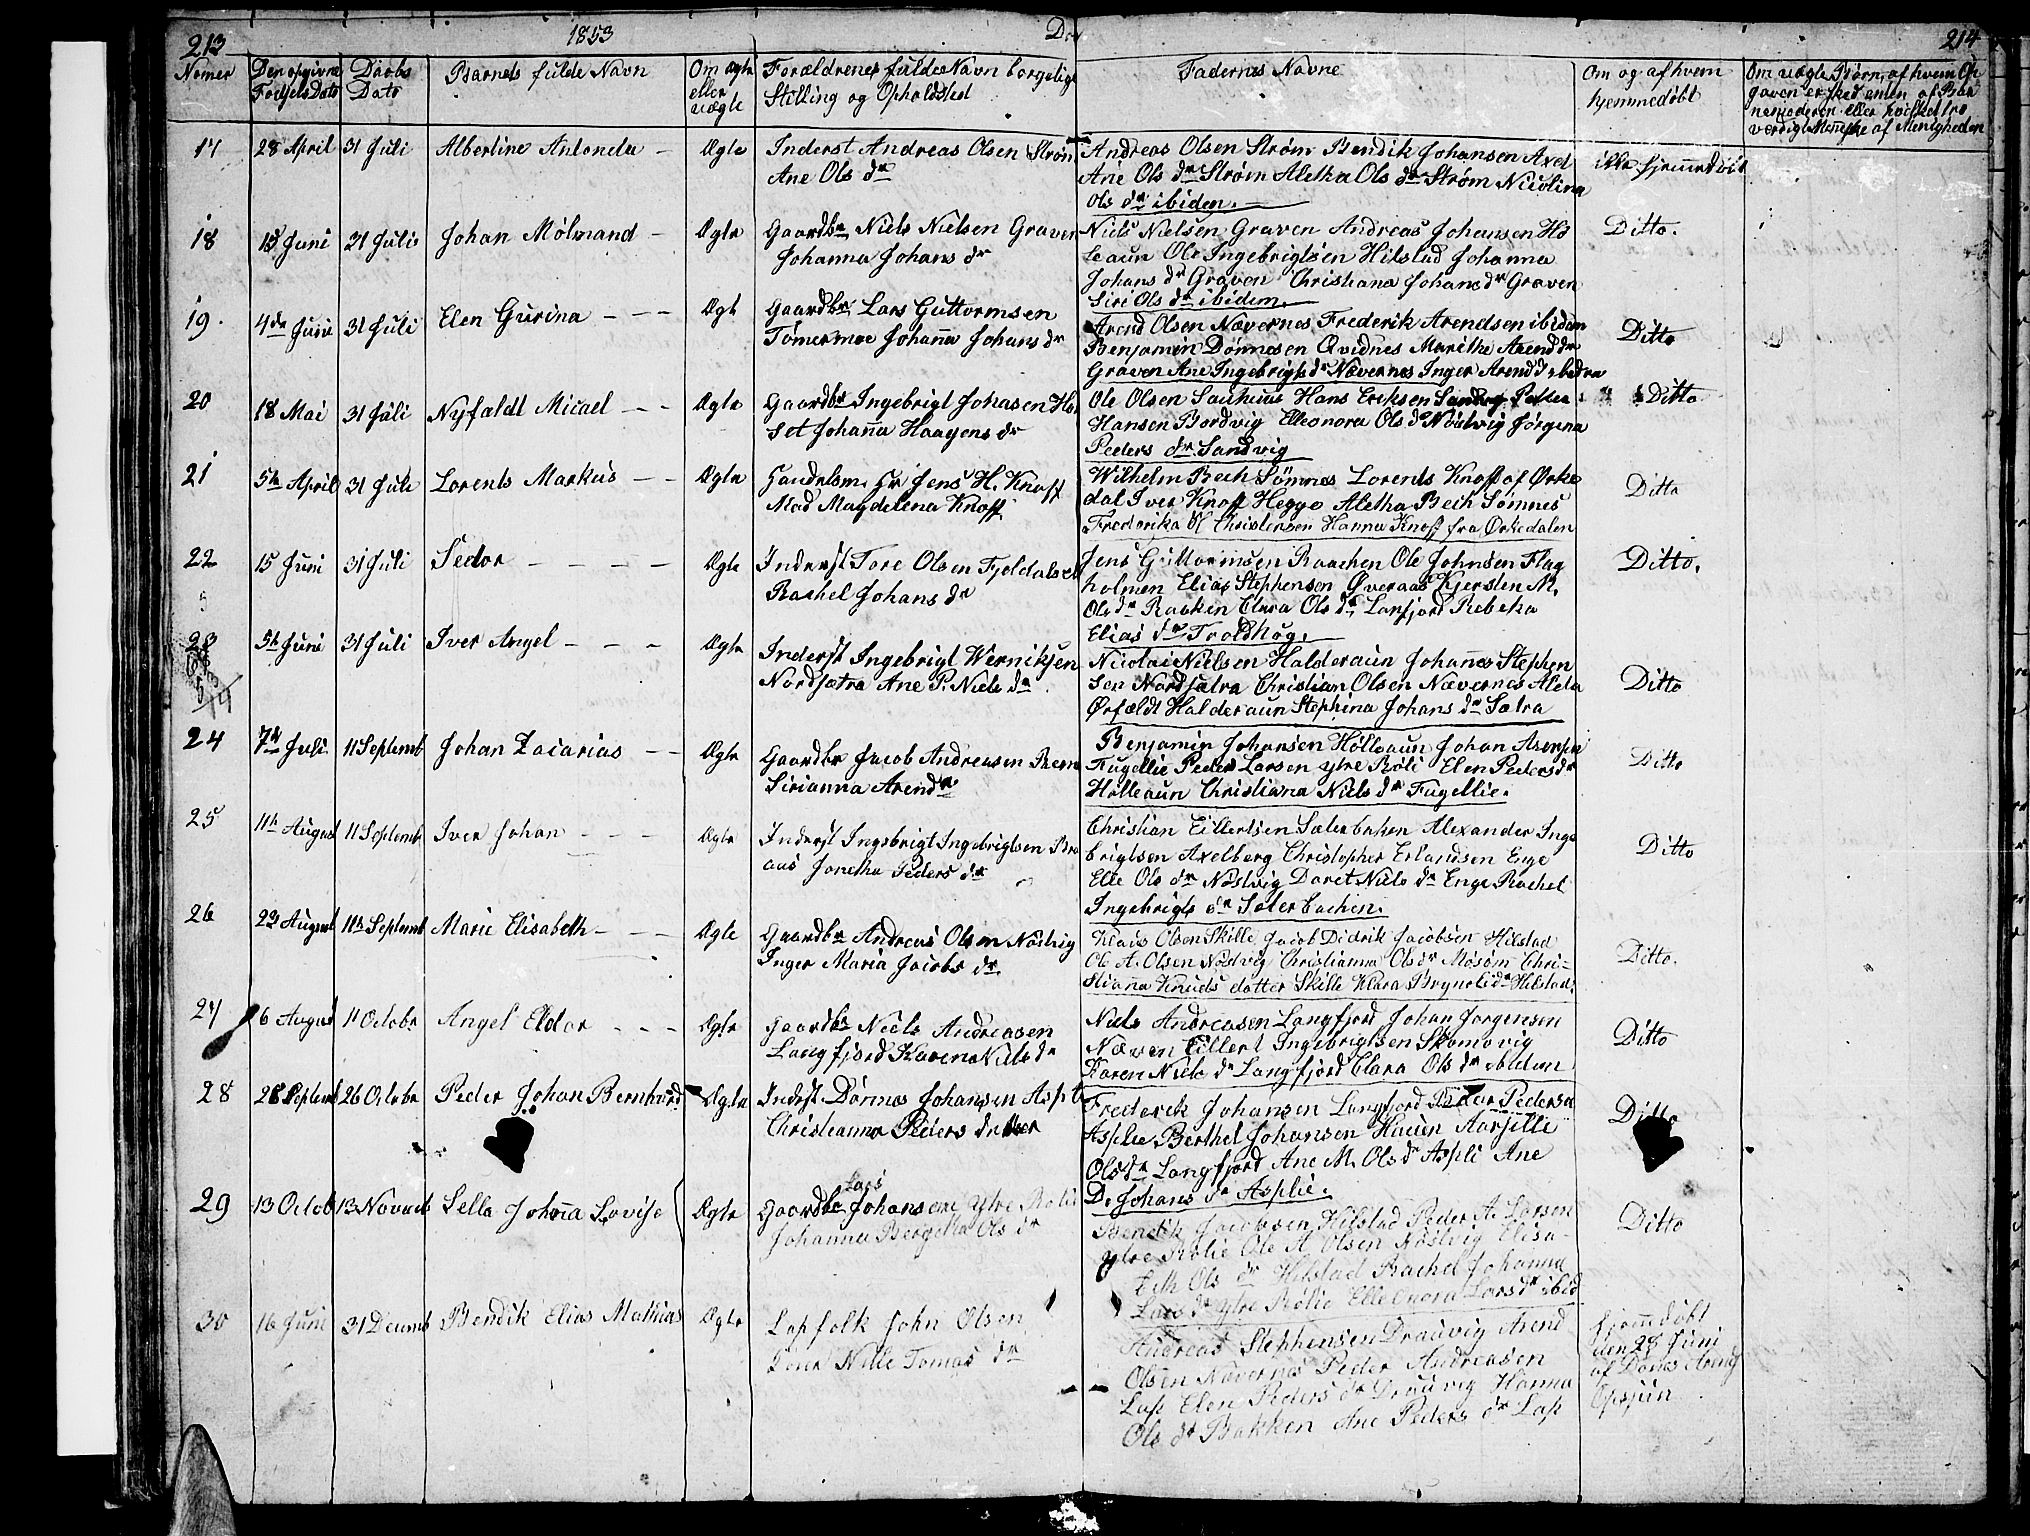 213
1853
214
Nomer
Den opgivne Fødsels Dato
Daabs Dato
Barnets fulde Navn
Om Ægte eller uægte
Forældrenes fulde Navn borgelige
Stilling og Opholdsted
Fadernes Navne
Om og af hvem
hjemmedøbt
17 28 April 31 Juli Albertine Antoneta - Ægte
Inderst Andreas Olsen Strøm
Ane Ols dr
Andreas Olsen Strøm Bendik Johansen Axel
Ane Ols dr Strøm Aletha Ols dr Strøm Nicolina
Ols dr ibiden.
ikke hjemmedøbt
18 15 Juni 31 Juli Johan Mølmand - Ægte
Gaardbr Niels Nielsen Graven
Johanna Johans dr
Niels Nielsen Graven Andreas Johansen Hø
leaun Ole Ingebrigtsen Hilstad Johanna
Johans dr Graven Christiana Johans dr Graven
Siri Ols dr ibidem.
Ditto.
19. 4de Juni 31 Juli Elen Gurina - - - Ægte
Gaardbr Lars Guttormsen
Tømermoe Johanna Johans dr
Arend Olsen Nævernes Frederik Arendsen ibidem
Benjamin Dønnesen Qvidnes Marithe Arend dr
Graven Ane Ingebrigts dr Nævernes Inger Arend dr
Ditto
20 18 Mai 31 Juli Nyfaldt Micael - - Ægte
Gaardbr Ingebrigt Johasen Ho
set Johanna Haagens dr
Ole Olsen Hans Eriksen
Hansen Bordvig Elleonora Ols dr Nøstvig Jørgena
Peders dr Sandvig
Ditto.
21 5te April 31 Juli Lorents Markus - - Ægte
Handelsm. Hr Jens H. Knoff
Mad Magdelena Knoff
Wilhelm Bech Sømnes Lorents Knoff af Ørke
dal Iver Knoff Hegge Aletha Bech Sømnes
Frederika Christensen Hanna Knoff fra Ørkedalen
Ditto
22 15 Juni 31 Juli Pedor - - - - Ægte
Inderst Tore Olsen Fjeldalset
Rachel Johans dr
Jens Guttormsen Raachen Ole Johnsen Flag
holmen Elias Stephensen Øveraas Kjersten M.
Ols dr Raaken Clara Ols dr Lanfjord Rebeka
Elias dr Troldhøg.
Ditto.
23 5te Juni 31 Juli Iver Angel - - - Ægte
Inderst Ingebrigt Werniksen
Nordsætra Ane P. Niels dr
Nicolai Nielsen Halderaun Johannes Stephen
sen Nordsætra Christian Olsen Nævernes Aleta
Ørfældt Halderaun Stephina Johans dr Sætra
Ditto
24 7de Juli 11 Septemb Johan Zacarias - - Ægte
Gaardbr Jacob Andreasen
Sirianna Arend dr
Benjamin Johansen Hølleaun Johan
Fugellie Peder Larsen ytre Røli Elen Peders dr
Hølleaun Christiana Niels dr Fugellie.
Ditto
25 11te August 11 Septemb Iver Johan - - - Ægte
Inderst Ingebrigt Ingebrigtsen Bra
aas Jonetha Peders dr
Christian Eillertsen Sæterbaken Alexander Inge
brigtsen Axelberg Christopher Erlandsen Enge
Elie Ols dr Nøstvig Doret Niels dr Enge Rachel
Ingebrigts dr Sæterbachen.
Ditto
26 23 August 11te Septemb Marie Elisabeth - - - Ægte
Gaardbr Andreas Olsen Nøstvig
Inger Maria Jacobs dr
Klaus Olsen Skille Jacob Didrik Jacobsen Hilstad
Ole A. Olsen Nøstvig Christianna Ols dr Mosøm Chri=
stianna Knuds datter Skille Klara Brynels dr Hilstad.
Ditto.
27 6 August 11 Octobr Angel Eldor - - - Ægte
Gaardbr Niels Andreasen
Langfjord Karen Niels dr
Niels Andreasen Langfjord Johan Jørgensen
Næven Eillert Ingebrigtsen Skomovig
Karen Niels dr Langfjord Clara Ols dr ibidem
Ditto
28 28 Septemb 26 Octobr Peder Johan Bernhard Ægte
Inderst Dønnes Johansen Aspli
Christianna Peders dr
Frederik Johansen Langfjord Peder Pedersen
Asplie Berthel Johansen
Ols dr Langfjord Ane M. Ols dr Aspli Ane
D. Johans dr Asplie.
Ditto
29 13 Octob 13 Novemb Sella Johanna Lovise Ægte
Gaardbr Lars Johansen Ytre Rølie
Johanna Bergitha Ols dr
Bendik Jacobsen Hilstad Peder A. Larsen
ytre Rølie Ole A. Olsen Nøstvig Elisa-
beth Ols dr Hilstad Rachel Johanna
Lars dr ytre Rølie Elleonora Lars dr ibid
Ditto
30 16 Juni 31 Decemb Bendik Elias Mathias Ægte
Lapfolk John Olsen
Niels Tomas dr
Andreas Stephensen Drauvig Arend
Olsen Nævernes Peder Andreasen
Lap Elen Peders dr Drauvig Hanna
Ols dr Bakken Ane Peders dr Lap
hjemmedøbt
den 28 Juni
af Dønes Arendt